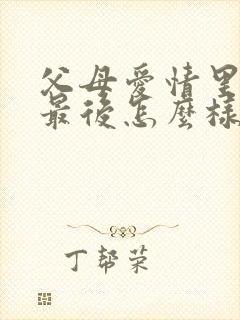 父母愛情里
最後怎麼樣
丁幫榮